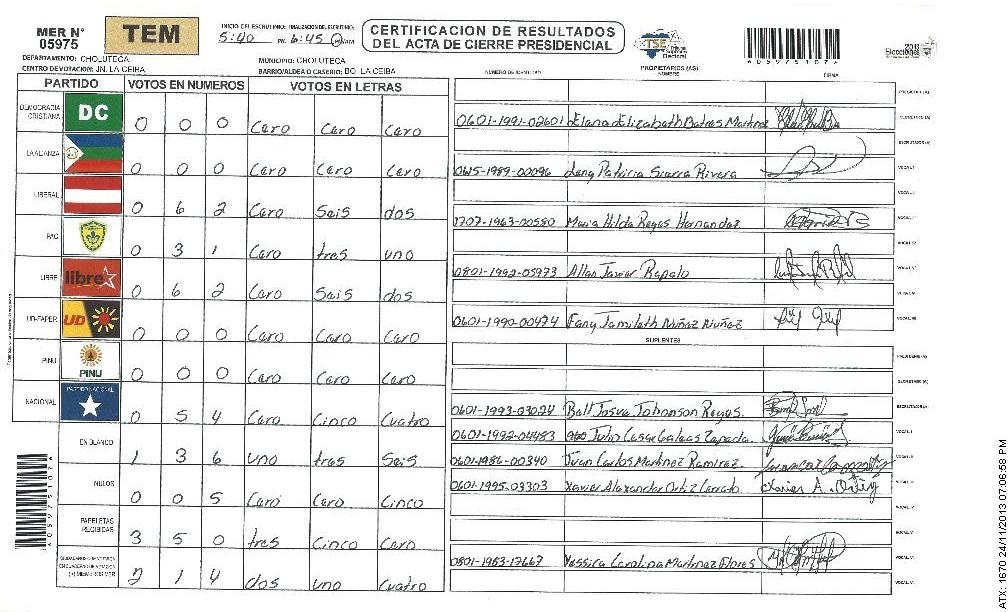 MER N° 05975
TEM
INICIO DEL ESCRUTINIO: FINALIZACION DEL ESCRUTINIO:
5:00 PM 6:45
CERTIFICACION DE RESULTADOS
DEL ACTA DE CIERRE PRESIDENCIAL
TSE Tribunal Supremo Electoral
A05975107A
DEPARTAMENTO: CHOLUTECA
MUNICIPIO: CHOLUTECA
CENTRO DE VOTACION: JN. LA CEIBA
BARRIO/ALDEA O CASERIO: BO. LA CEIBA
NUMERO DE IDENTIDAD
PROPIETARIOS (AS)
NOMBRE
FIRMA
PARTIDO VOTOS EN NUMEROS VOTOS EN LETRAS
DEMOCRACIA CRISTIANA DC 0 0 0 Cero Cero Cero
LA ALIANZA 0 0 0 Cero Cero Cero
LIBERAL 0 6 2 Cero Seis dos
PAC 0 3 1 Cero tres uno
LIBRE libre 0 6 2 Cero Seis dos
UD-FAPER UD 0 0 0 Cero Cero Cero
PINU PINU 0 0 0 Cero Cero Cero
NACIONAL PARTIDO NACIONAL 0 5 4 Cero Cinco Cuatro
EN BLANCO 1 3 6 uno tres Seis
NULOS 0 0 5 Cero Cero Cinco
PAPELETAS RECIBIDAS 3 5 0 tres Cinco Cero
2 1 4 dos uno Cuatro
PRESIDENTE (A)
0601-1991-02601 Elana Elizabeth Batres Martinez SECRETARIO (A)
ESCRUTADOR (A)
0615-1989-00096 Leny Patricia Sierra Rivera VOCAL I
VOCAL II
1707-1963-00580 Maria Hilda Reyes Hernandez VOCAL III
VOCAL IV
0801-1992-05973 Allan Javier Rapalo VOCAL V
VOCAL VI
0601-1990-00474 Fany Jamileth Nuñez Nuñez VOCAL VII
SUPLENTES
PRESIDENTE (A)
SECRETARIO (A)
0601-1993-03024 Ball Josva Johonson Reyes. ESCRUTADOR (A)
0601-1992-04483 Julio Cesar Zapeda. VOCAL I
0601-1986-00340 Juan Carlos Martinez Ramirez. VOCAL II
0601-1995-03303 Xavier Alexander Ortiz Xavier A. Ortiz VOCAL III
VOCAL IV
VOCAL V
0801-1983-17667 Yessica Carolina Martinez Flores VOCAL VI
VOCAL VII
A05975107A
ATX: 1670 24/11/2013 07:06:58 PM